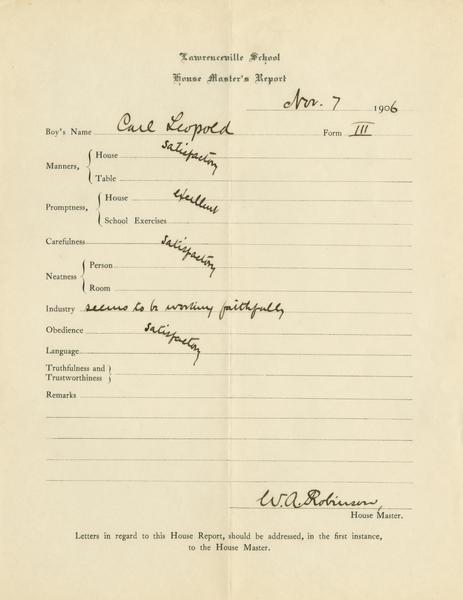 Lawrenceville School
House Master's Report
Nov. 7 1906
Boy's Name Carl Leopold Form III
Manners, { House satisfactory
Table
Promptness, { House excellent
School Exercises
Carefulness satisfactory
Neatness { Person
Room
Industry seems to be working faithfully
Obedience satisfactory
Language
Truthfulness and }
Trustworthiness }
Remarks
W.A. Robinson,
House Master.
Letters in regard to this House Report, should be addressed, in the first instance,
to the House Master.